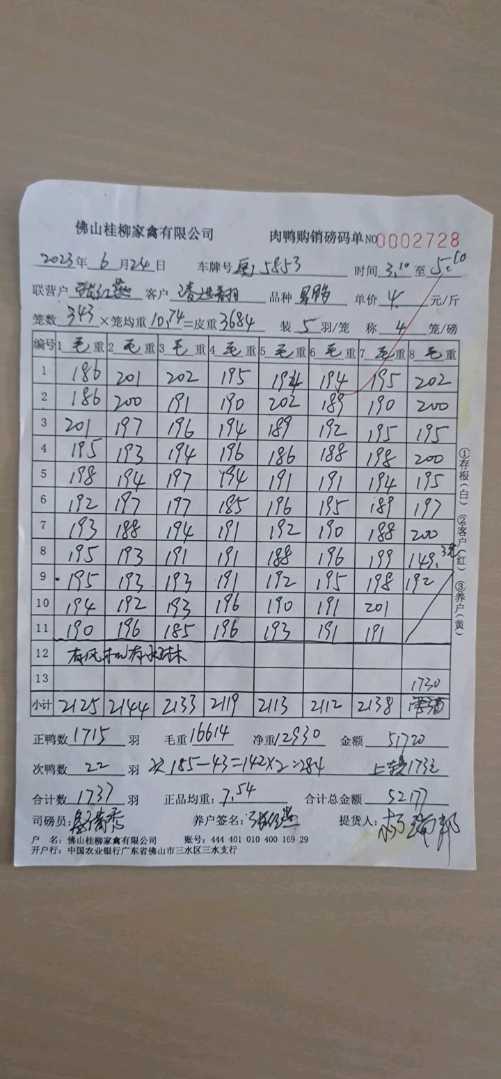 佛山桂柳家禽有限公司 肉鸭购销磅码单 NO0002728
2023年 6月24日 车牌号 5853 时间 3.10 至 5.10
联营户 客户 品种 单价 4. 元/斤
笼数 343 ×笼均重 10.74 =皮重 3684 装 5 羽/笼 称 4 笼/磅
编号 1 毛重 2 毛重 3 毛重 4 毛重 5 毛重 6 毛重 7 毛重 8 毛重
1 186 201 202 195 194 194 195 202
2 186 200 191 190 202 189 190 200
3 201 197 196 194 189 192 195 195
4 195 193 194 196 186 188 198 200
5 198 194 197 194 191 191 194 195
6 192 197 197 185 196 195 189 197
7 193 188 194 191 192 190 188 200
8 195 193 191 191 188 196 199 149.3笼
9 195 193 193 191 192 195 198 192
10 194 192 193 196 190 191 201
11 190 196 185 196 193 191 191
12
13 1730
小计 2125 2144 2133 2119 2113 2112 2138
正鸭数 1715 羽 毛重 16614 净重 12930 金额 51720
次鸭数 22 羽 次 185-43=142×2=284
合计数 1737 羽 正品均重: 7.54 合计总金额 52177
司磅员: 养户签名: 提货人:
户 名: 佛山桂柳家禽有限公司 账号: 444 401 010 400 169 29
开户行: 中国农业银行广东省佛山市三水区三水支行
①存根(白) ②客户(红) ③养户(黄)